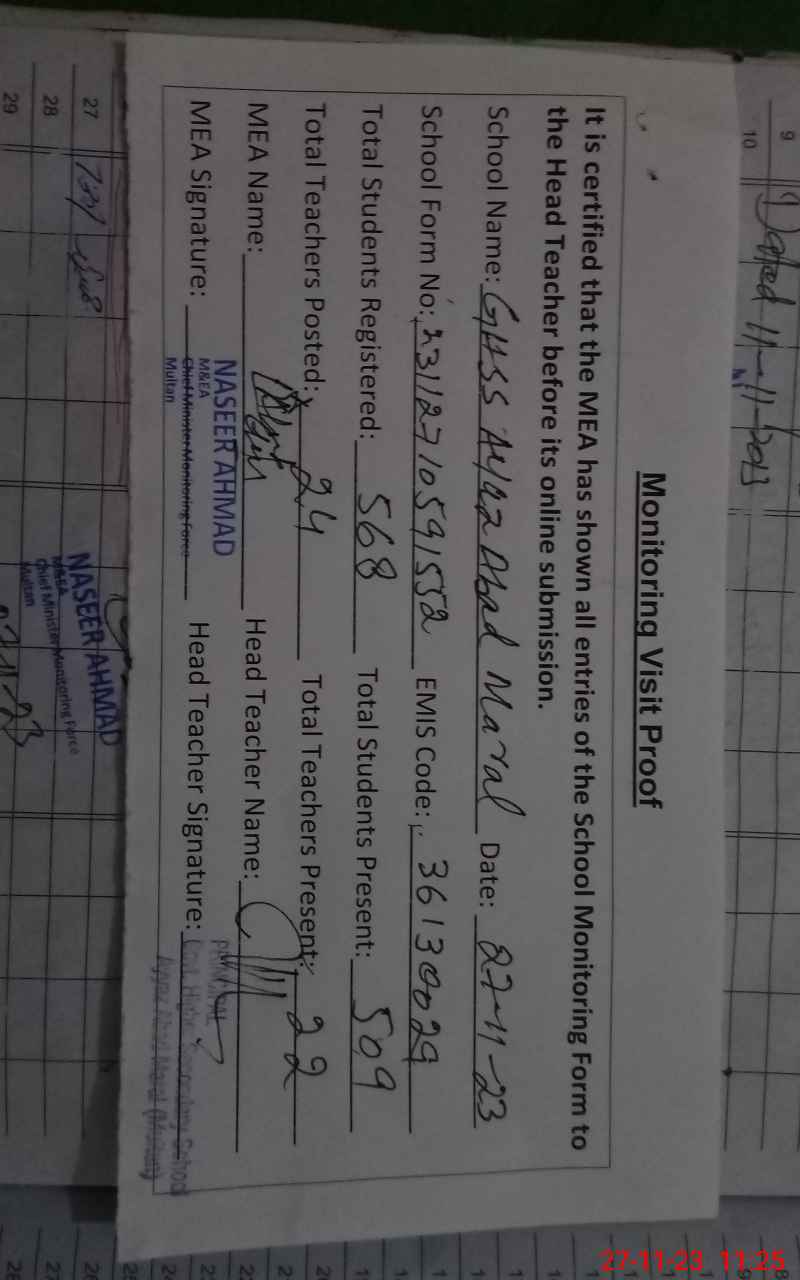 9
10
Dated 11-11-2023
Monitoring Visit Proof
It is certified that the MEA has shown all entries of the School Monitoring Form to
the Head Teacher before its online submission.
School Name: GHSS Ayaz Abad Maral Date: 27-11-23
School Form No: 231127105915 52 EMIS Code: 36130029
Total Students Registered: 568 Total Students Present: 509
Total Teachers Posted: 24 Total Teachers Present: 22
MEA Name: Head Teacher Name:
NASEER AHMAD
M&EA
Chief Minister Monitoring Force
Multan
PRINCIPAL
MEA Signature: Head Teacher Signature:
Govt. Higher Secondary School
Ayyaz Abad Maral (Multan)
27
28
29
NASEER AHMAD
M&EA
Chief Minister Monitoring Force
Multan
27-11-23 11:25